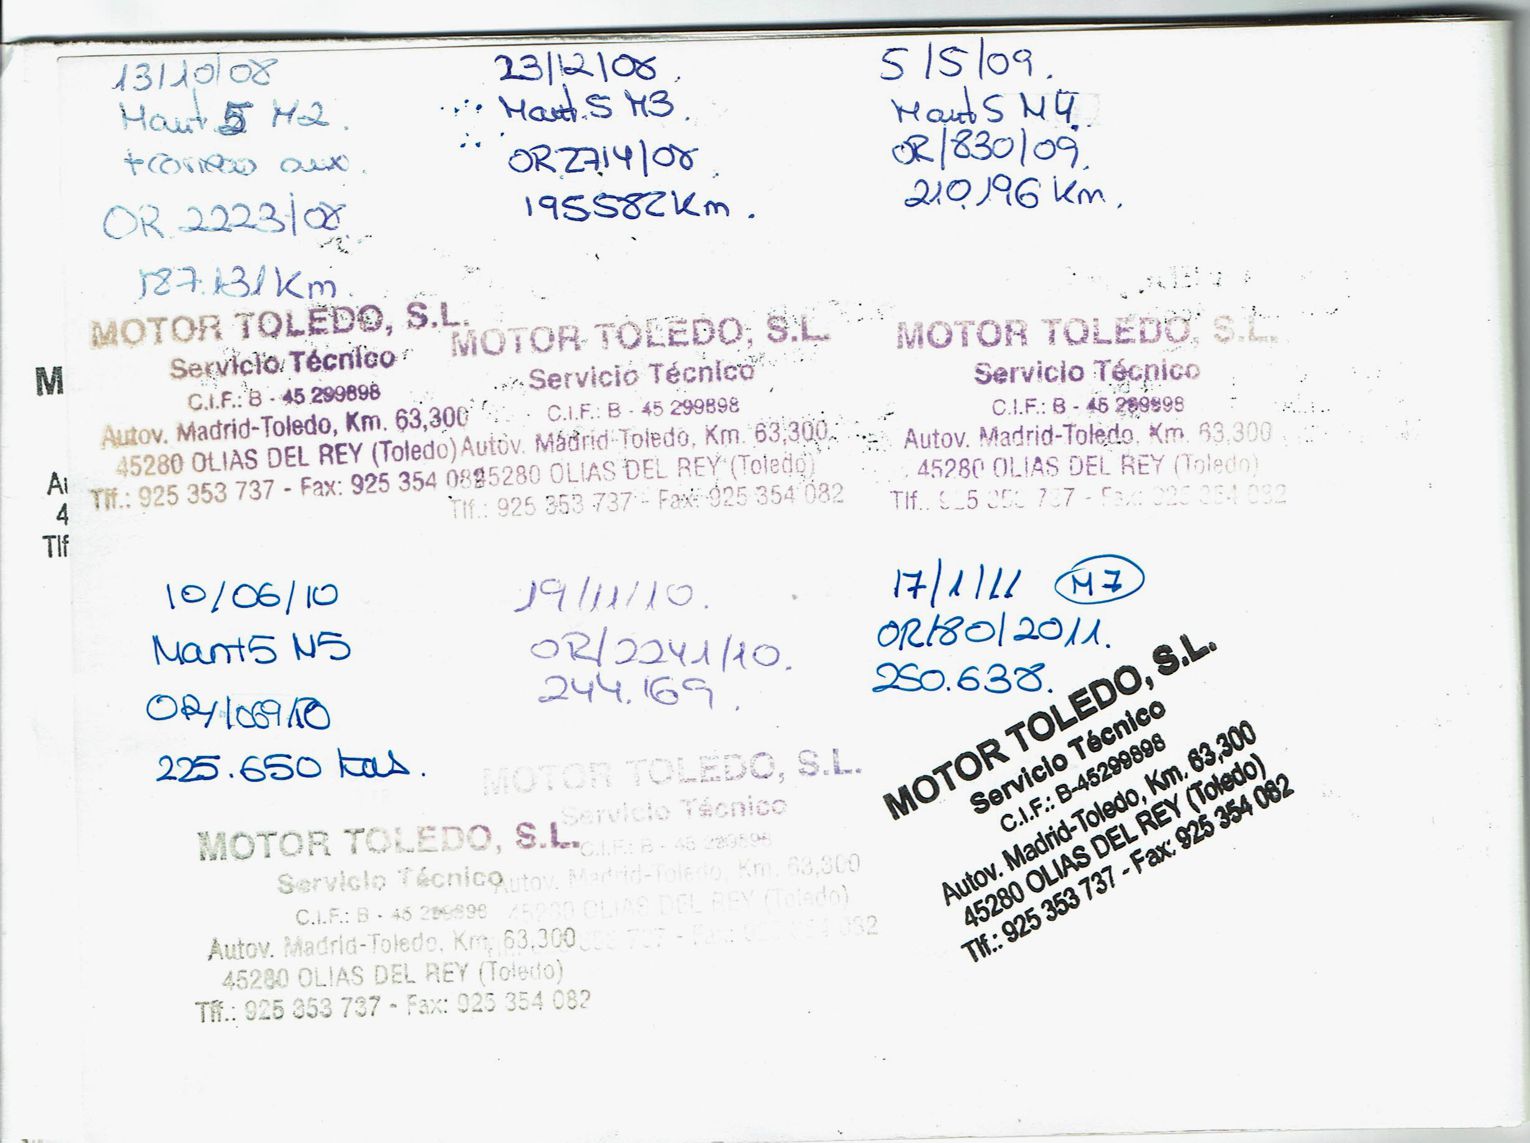 13/10/08
Mant 5 M2.
+correo aux.
OR 2223/08
187.131 Km
MOTOR TOLEDO, S.L.
Servicio Técnico
C.I.F.: B - 45 299898
Autov. Madrid-Toledo, Km. 63,300
45280 OLIAS DEL REY (Toledo)
Tlf.: 925 353 737 - Fax: 925 354 082
23/12/08.
Mant. 5 M3.
OR 2714/08.
195582 Km.
MOTOR TOLEDO, S.L.
Servicio Técnico
C.I.F.: B - 45 299898
Autov. Madrid-Toledo, Km. 63,300
45280 OLIAS DEL REY (Toledo)
Tlf.: 925 353 737 - Fax: 925 354 082
5/5/09.
Mant 5 M4.
OR/830/09.
210.196 Km.
MOTOR TOLEDO, S.L.
Servicio Técnico
C.I.F.: B - 45 299898
Autov. Madrid-Toledo, Km. 63,300
45280 OLIAS DEL REY (Toledo)
Tlf.: 925 353 737 - Fax: 925 354 082
M
4
Tlf
10/06/10
Mant5 M5
225.650 kms.
MOTOR TOLEDO, S.L.
Servicio Técnico
C.I.F.: B - 45 299898
Autov. Madrid-Toledo, Km. 63,300
45280 OLIAS DEL REY (Toledo)
Tlf.: 925 353 737 - Fax: 925 354 082
19/11/10.
OR/2241/10.
244.169.
MOTOR TOLEDO, S.L.
Servicio Técnico
C.I.F.: B - 45 299898
Autov. Madrid-Toledo, Km. 63,300
45280 OLIAS DEL REY (Toledo)
353 737 - Fax: 925 354 082
17/1/11 M7
OR/80/2011.
250.638.
MOTOR TOLEDO, S.L.
Servicio Técnico
C.I.F.: B-45299898
Autov. Madrid-Toledo, Km. 63,300
45280 OLIAS DEL REY (Toledo)
Tlf.: 925 353 737 - Fax: 925 354 082